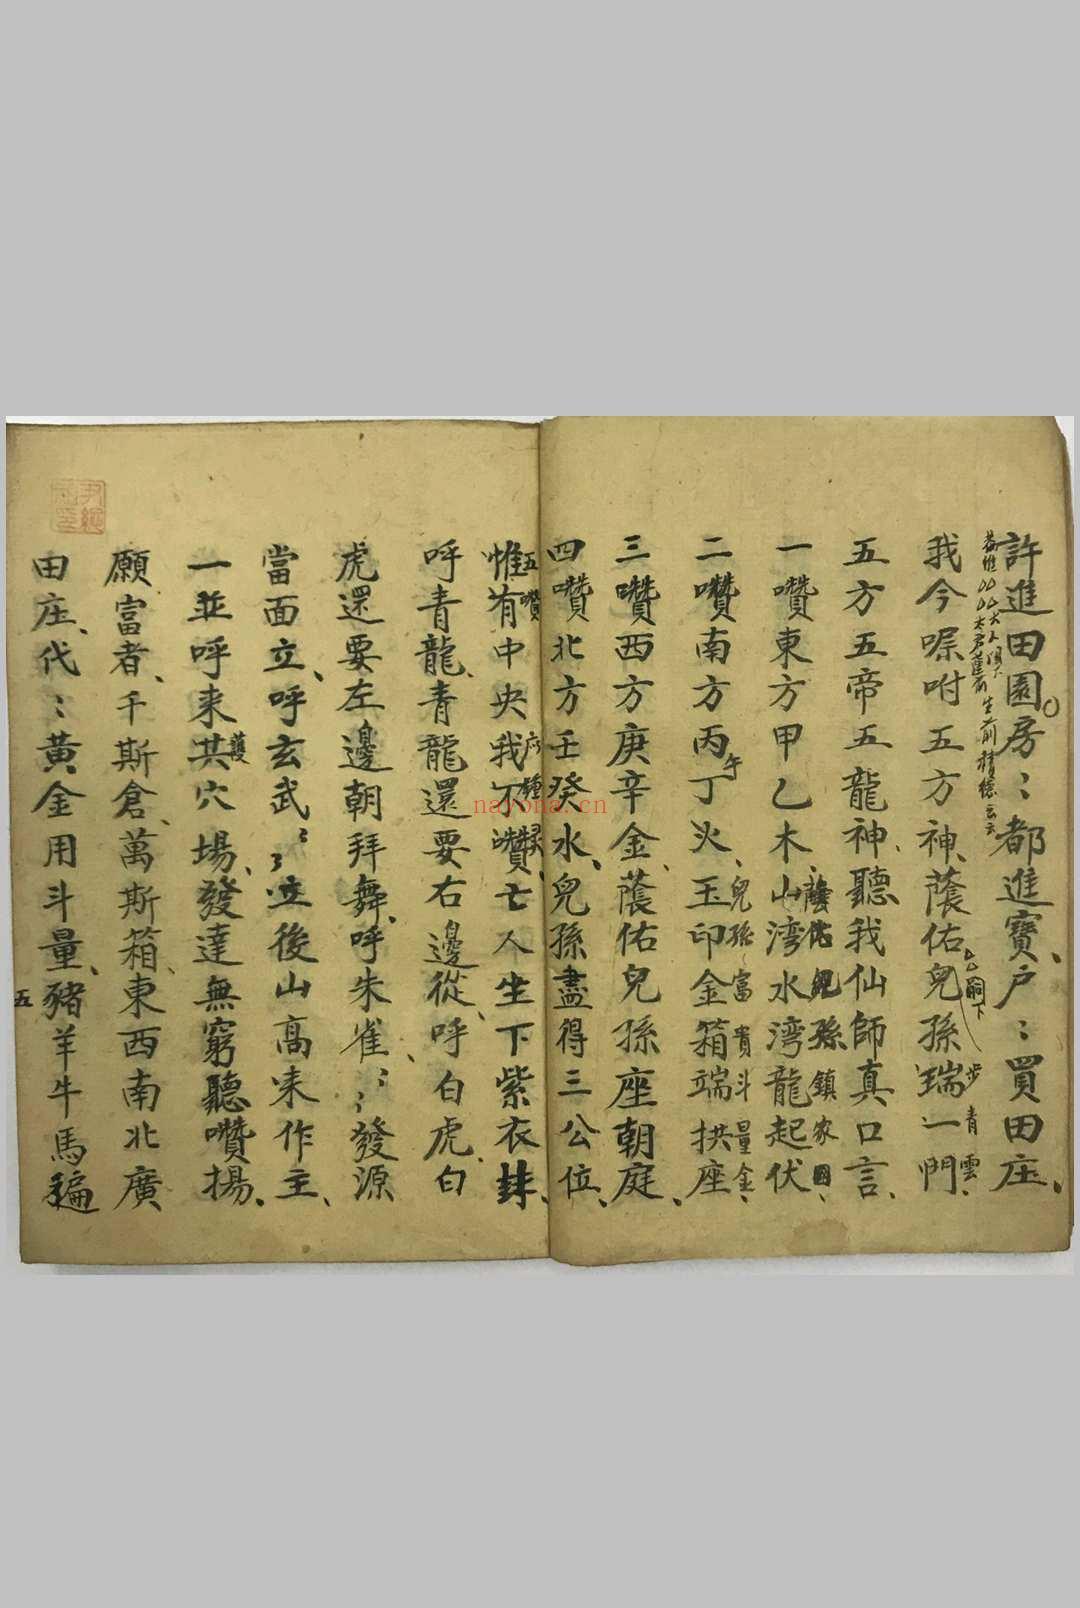 許進田園房〻都進寶户〻買田庄
生前積德云云
我今嘱咐五方神蔭佑兒孫瑞一門
嗣下
步青雲
五方五帝五龍神聽我仙師真口言
一讚東方甲乙木山湾水湾龍起伏
蔭佑兒孫鎮家國
二讚南方丙丁火玉印金箱端拱座
午
兒孫富貴斗量金
三讚西方庚辛金蔭佑兒孫座朝庭
四讚北方壬癸水兒孫盡得三公位
五讚
惟有中央我不讚亡人生下紫衣
呼青龍青龍還要右邊從呼白虎白
虎還要左邊朝拜舞呼朱雀〻發源
當面立呼玄武〻立後山高来作主
一並呼来其穴場發達無窮聽讚揚
護
願富者千斯倉萬斯箱東西南北廣
田庄代〻黃金用斗量豬羊牛馬
五
nayona.cn